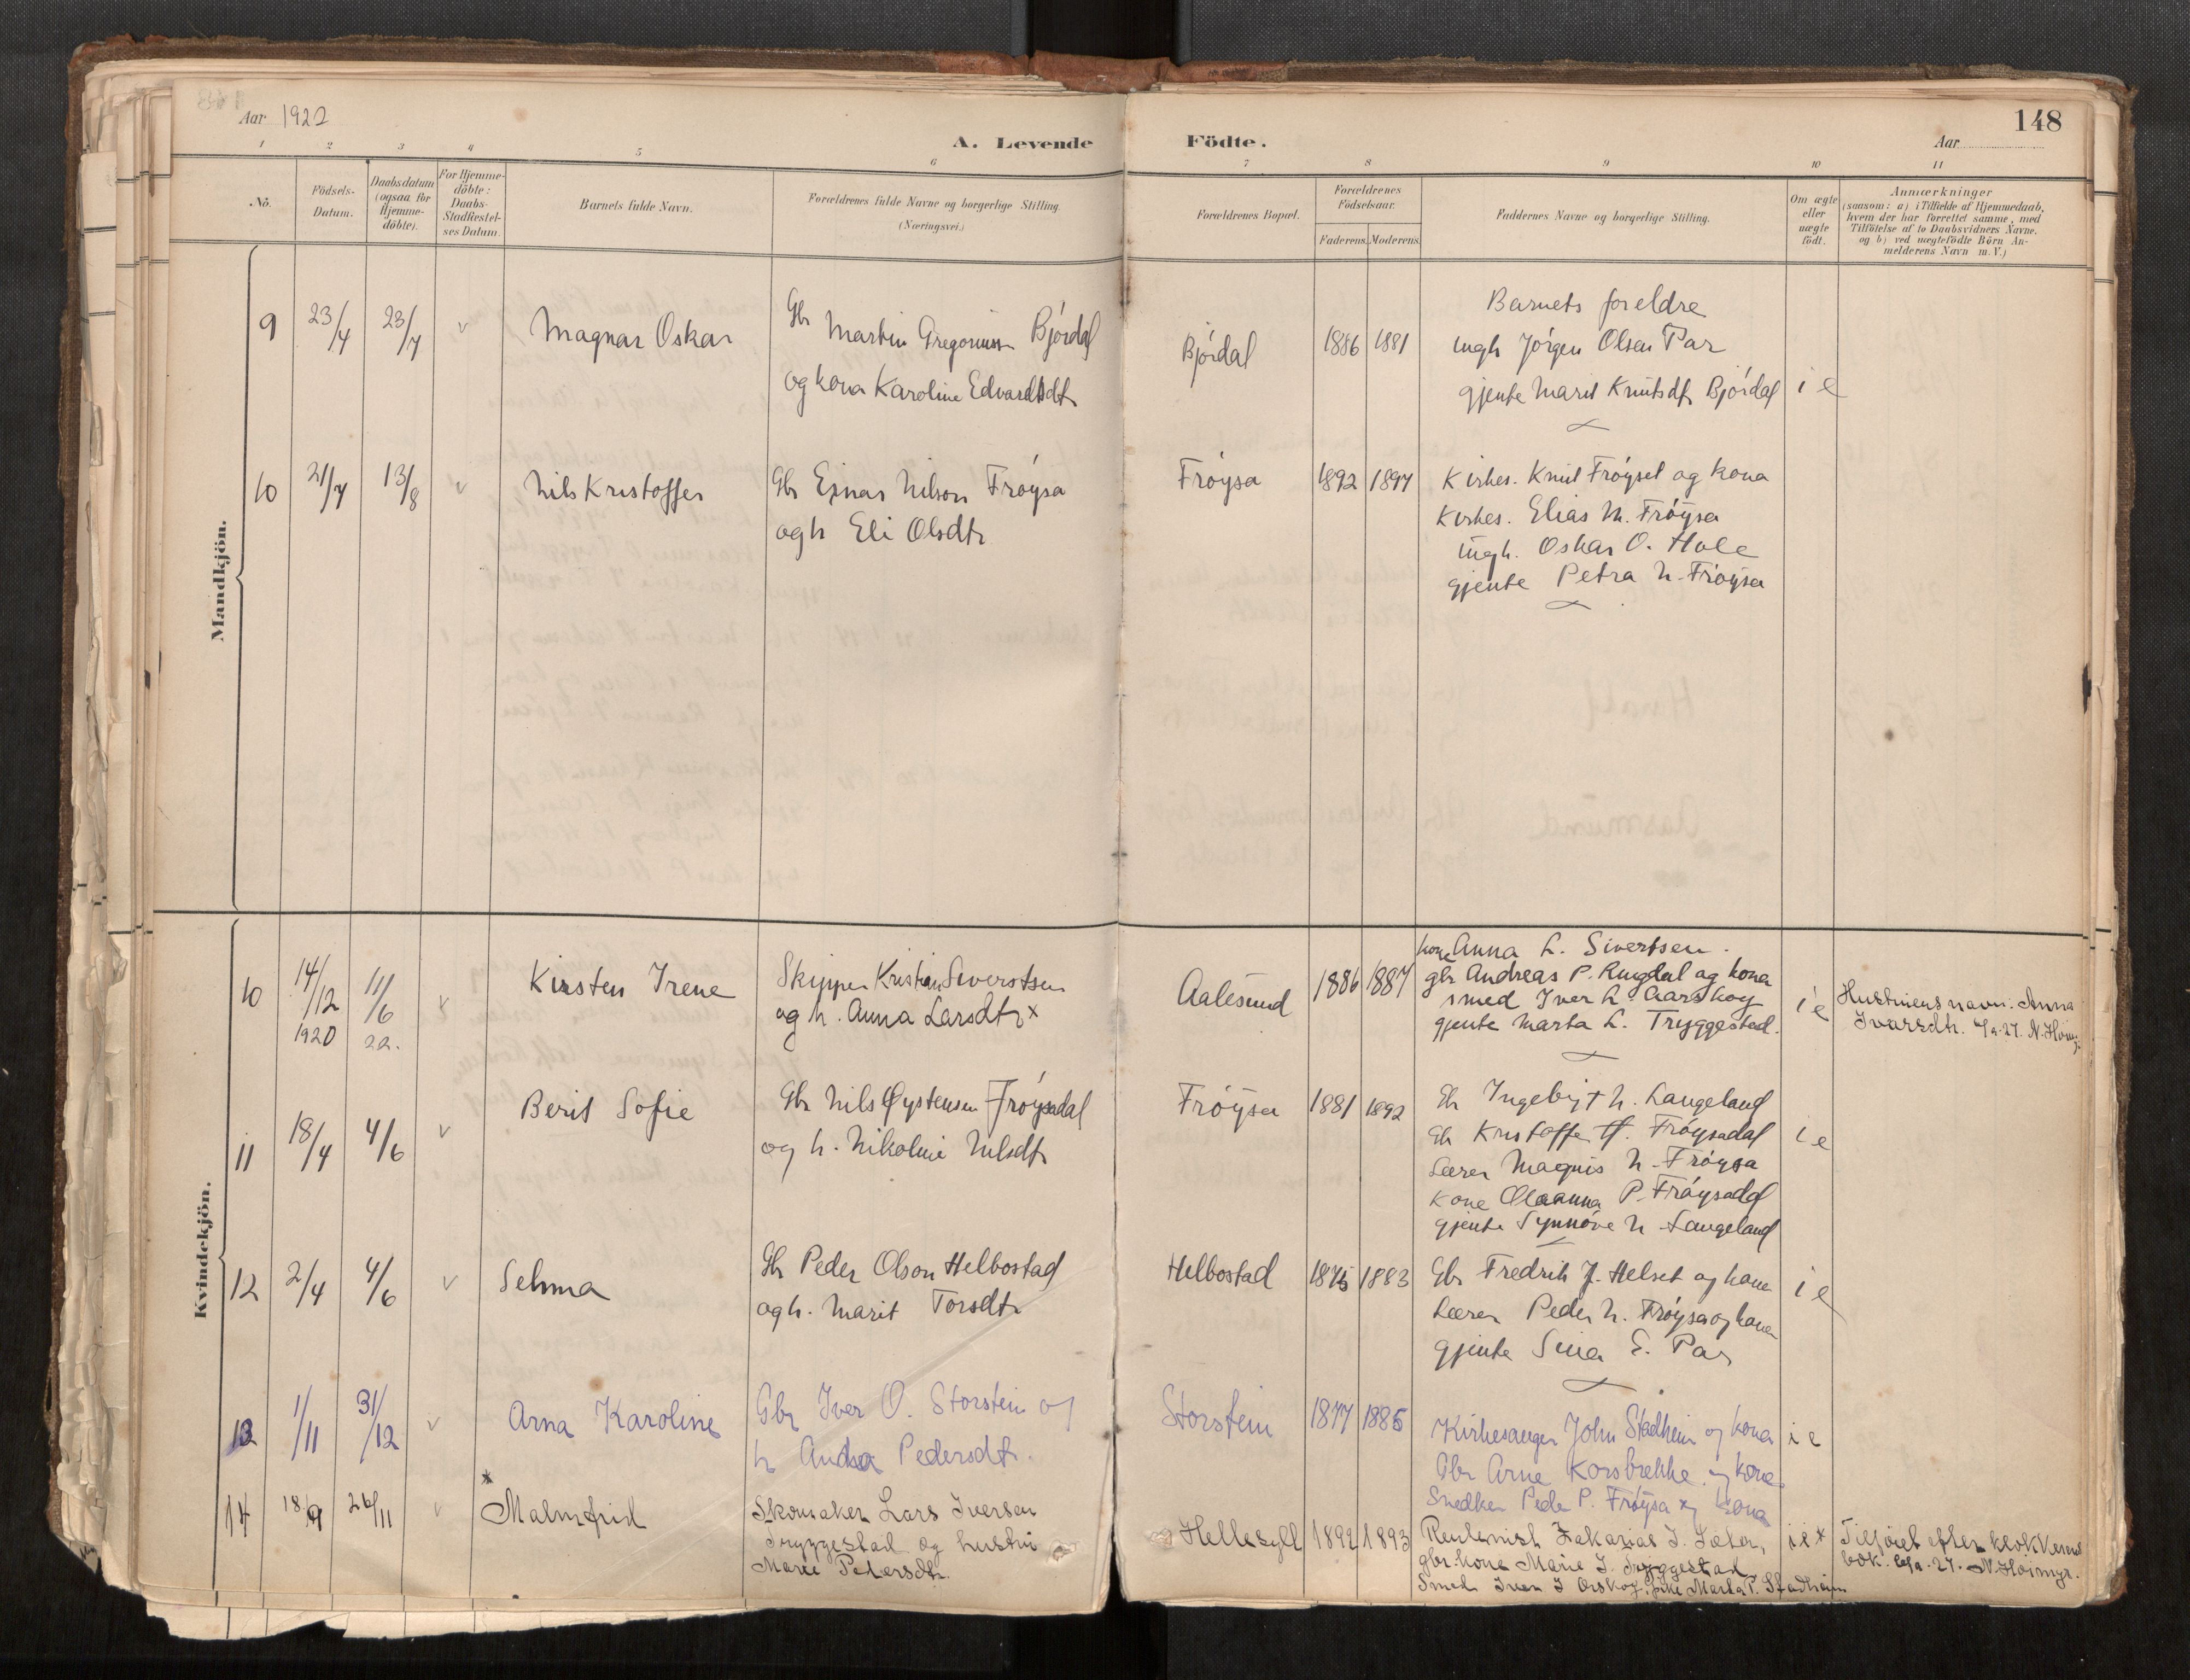 Aar 1922
A. Levende Födte.
Aar
148
1 2 3 4 5 6 7 8 9 10 11
No.
Födsels-Datum.
Daabsdatum (ogsaa for Hjemme-döbte).
For Hjemme-döbte: Daabs-Stadfæstel-ses Datum.
Barnets fulde Navn.
Forældrenes fulde Navne og borgerlige Stilling.
(Næringsvei.)
Forældrenes Bopæl.
Forældrenes Födselsaar.
Faderens. Moderens.
Faddernes Navne og borgerlige Stilling.
Om ægte eller uægte födt.
Anmærkninger
(saasom: a) i Tilfælde af Hjemmedaab,
hvem der har forrettet samme, med
Tilföielse af to Daabsvidners Navne.
og b) ved uægtefödte Börn An-
melderens Navn m. V.)
Mandkjön.
9 23/4 23/7 v Magnar Oskar
Gbr Martin Gregoriussen Bjórdal
og kona Karoline Edvardsdtr
Bjórdal 1886 1881
Barnets foreldre
ungk Jórgen Olsen Par
gjente Marit Knutsdtr Bjórdal
i e
10 21/7 13/8 v Nils Kristoffer
Gbr Einar Nilson Fróysa
og h Eli Olsdtr
Fróysa 1892 1897
Kirkes. Knut Fróyset og kona
Kirkes. Elias M. Fróysa
ungk. Oskar O. Hole
gjente Petra N. Fróysa
Kvindekjön.
10 14/12 1920 11/6 22. v Kirsten Irene
Skipper Kristian Siverstsen
og h. Anna Larsdtr x
Aalesund 1886 1887
kone Anna L. Sivertsen.
gbr Andreas P. Ringdal og kona
smed Iver L. Aarskog
gjente Marta L. Tryggestad.
i e
Hustruens navn: Anna
Ivarsdtr. 4/2.27. N. Höim
11 18/4 4/6 v Berit Sofie
Gbr Nils Øystensen Fróysadal
og h. Nikoline Nilsdtr
Fróysa 1881 1892
Gbr Ingebrigt N. Langeland
Gbr Kristoffer H. Fróysadal
Lærer Magnus N. Fróysa
Kone Olaanna P. Fróysadal
gjente Synnóve N. Langeland
i e
12 2/4 4/6 v Selma
Gbr Peder Olson Helbostad
og h. Marit Torsdtr
Helbostad 1875 1883
Gbr Fredrik J. Helset og kone
Lærer Peder N. Fróysa og kona
gjente Sina E. Par
i e
13 1/11 31/12 v Arna Karoline
Gbr Iver O. Storstein og
h Anna Pedersdtr.
Storstein 1877 1885
Kirkesanger John Stadheim og kona
Gbr Arne Korsbrekke og kona
Snedker Peder P. Fróysa og kona
i e
14 18/9 26/11 v * Malmfrid
Skomaker Lars Iversen
Tryggestad og hustru
Marie Pedersdtr.
Hellesylt 1892 1893
Rentenist Zakarias I. Sæter,
gbr. kone Marie I. Tryggestad
Smed Iver I Ørskog, pike Marta P. Stadheim
i e *
Tilföiet efter klokkerens
bok. 4/2.27. N. Höimyr.